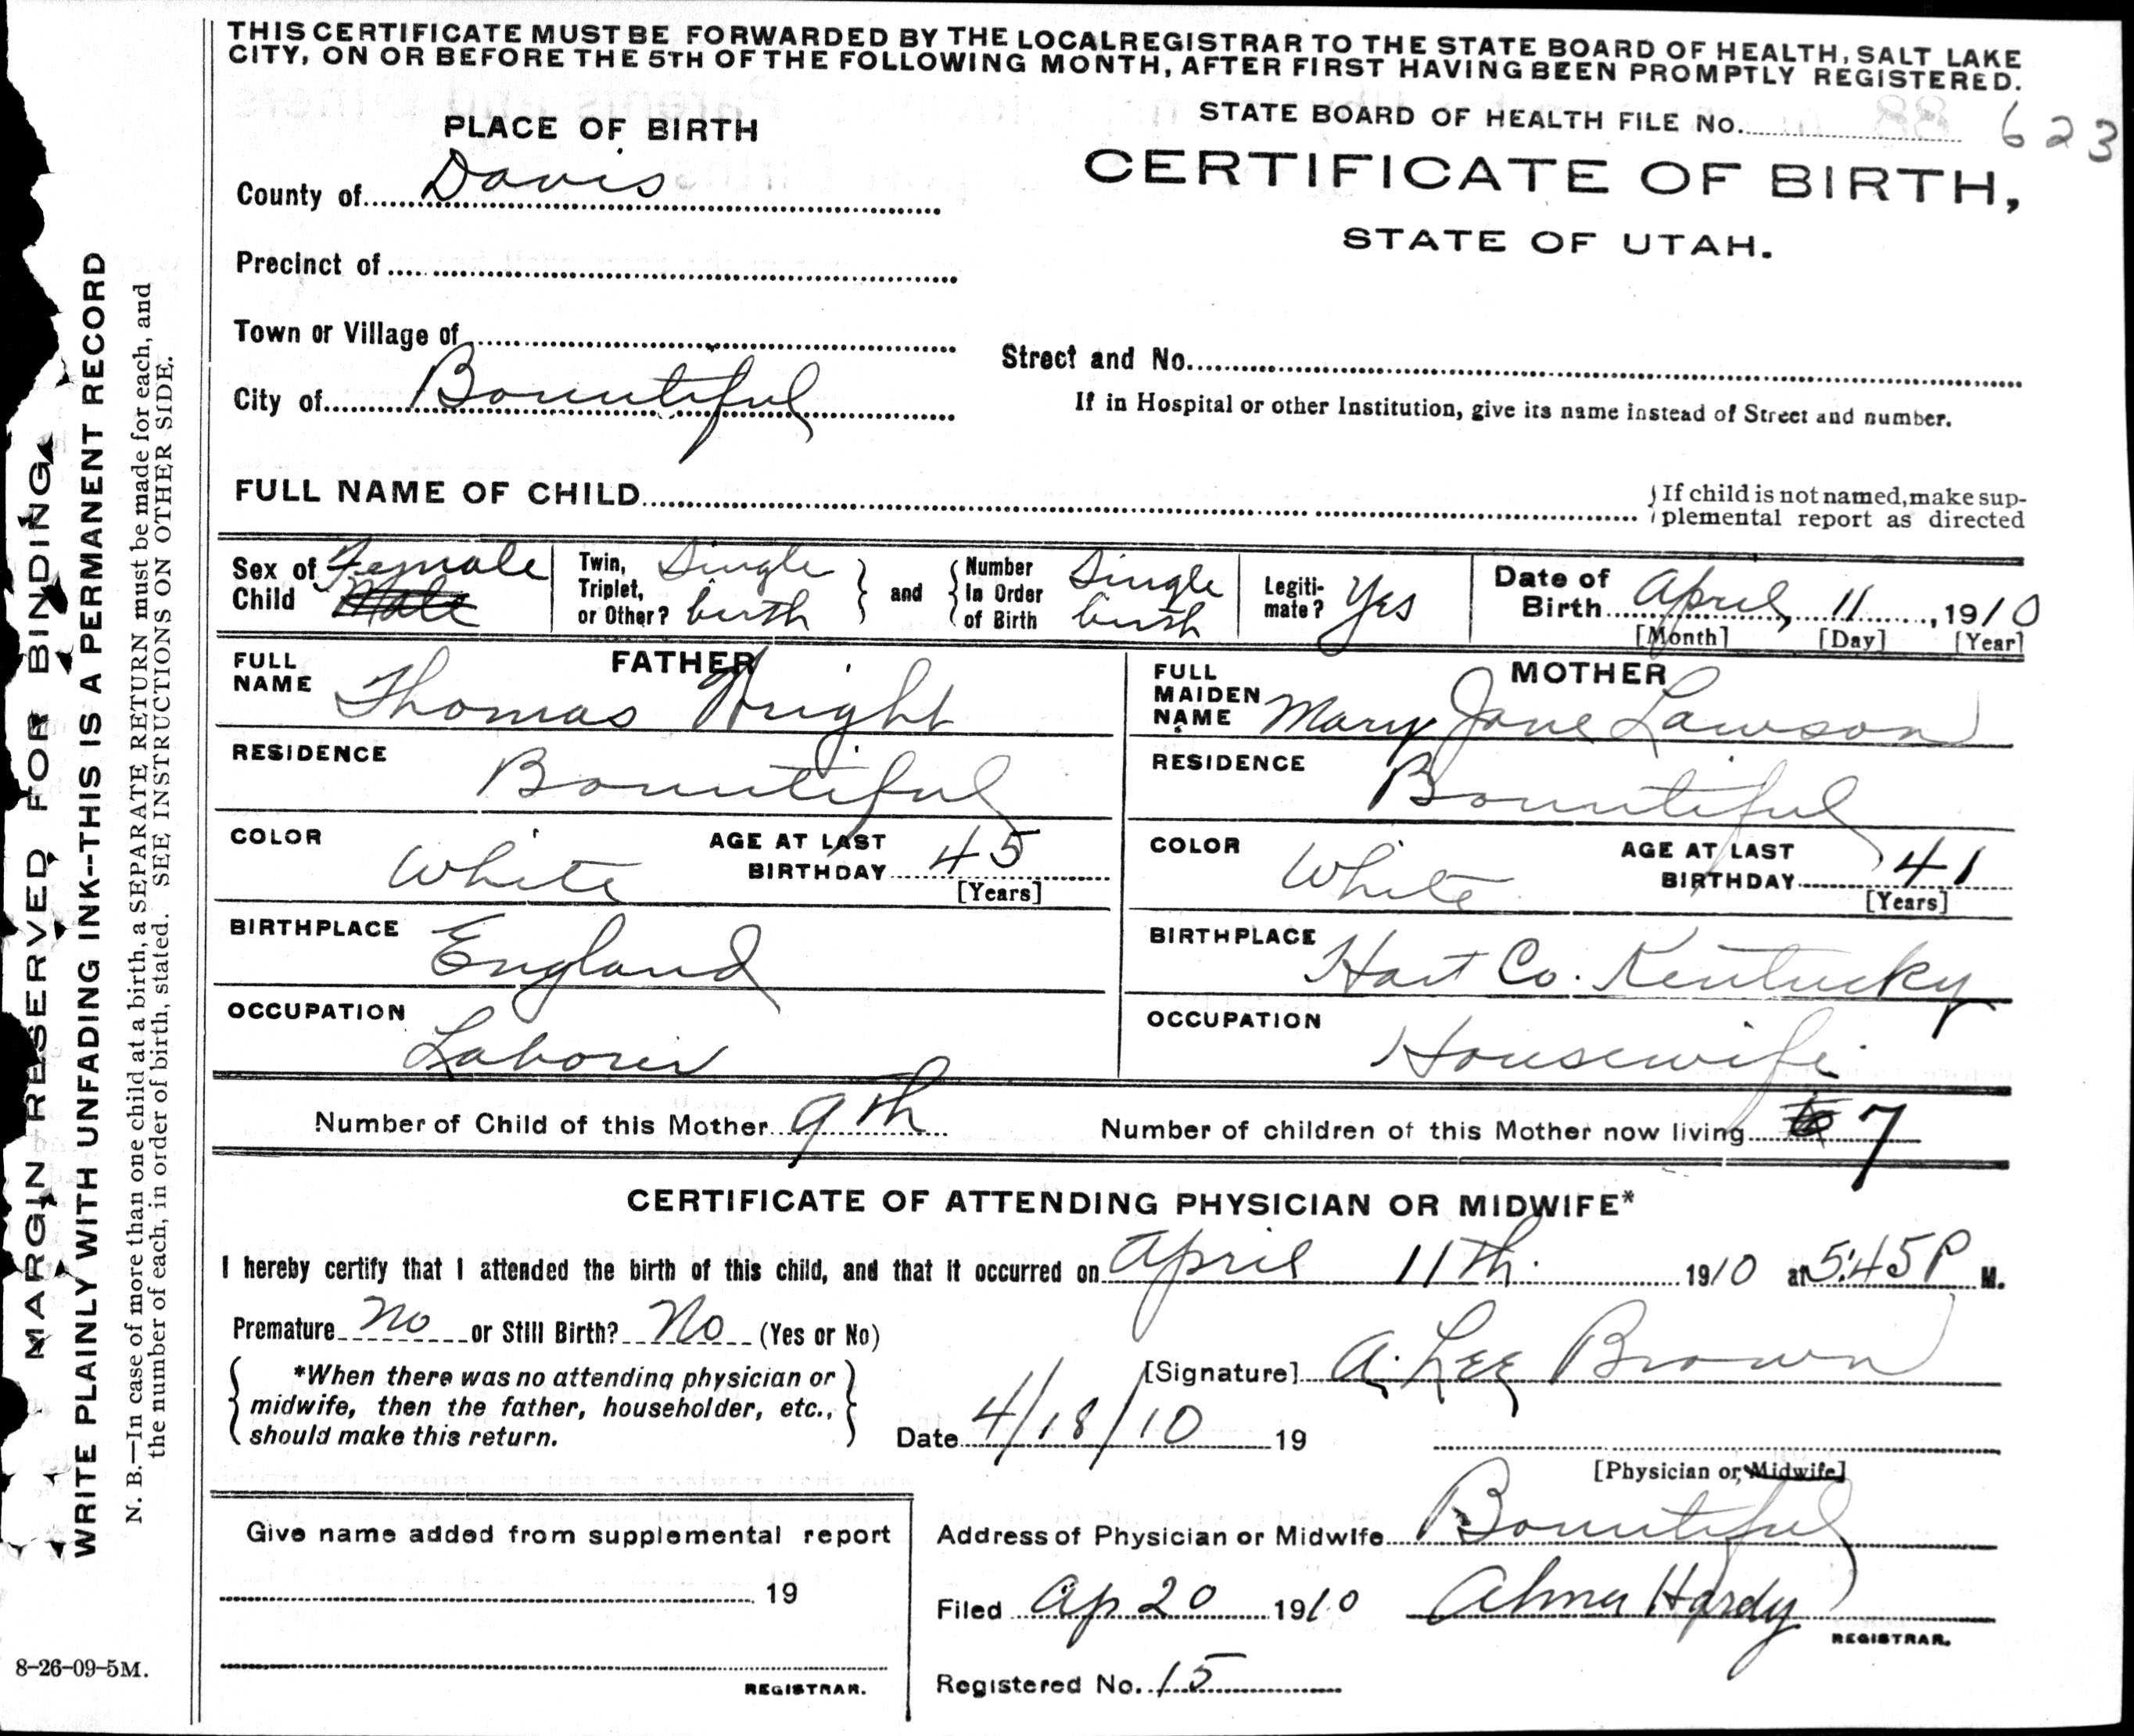 THIS CERTIFICATE MUST BE FORWARDED BY THE LOCAL REGISTRAR TO THE STATE BOARD OF HEALTH, SALT LAKE
CITY, ON OR BEFORE THE 5TH OF THE FOLLOWING MONTH, AFTER FIRST HAVING BEEN PROMPTLY REGISTERED.
STATE BOARD OF HEALTH FILE No. 623
PLACE OF BIRTH
CERTIFICATE OF BIRTH,
STATE OF UTAH.
County of Davis
Precinct of
Town or Village of
Street and No.
City of Bountiful
If in Hospital or other Institution, give its name instead of Street and number.
FULL NAME OF CHILD
If child is not named, make sup-
plemental report as directed
Sex of Child Female Male
Twin, Triplet, or Other? Single birth
and
Number In Order of Birth Single birth
Legiti-mate? Yes
Date of Birth April, 11, 1910
[Month] [Day] [Year]
FATHER
FULL NAME Thomas Wright
RESIDENCE Bountiful
COLOR White
AGE AT LAST BIRTHDAY 45
[Years]
BIRTHPLACE England
OCCUPATION Laborer
MOTHER
FULL MAIDEN NAME Mary Jane Lawson
RESIDENCE Bountiful
COLOR White
AGE AT LAST BIRTHDAY 41
[Years]
BIRTHPLACE Hart Co. Kentucky
OCCUPATION Housewife
Number of Child of this Mother 9th
Number of children of this Mother now living 7
CERTIFICATE OF ATTENDING PHYSICIAN OR MIDWIFE*
I hereby certify that I attended the birth of this child, and that it occurred on April 11th. 1910 at 5:45 P M.
Premature No or Still Birth? No (Yes or No)
*When there was no attending physician or
midwife, then the father, householder, etc.,
should make this return.
[Signature] A. Lee Brown
Date 4/18/10 19
[Physician or Midwife]
Give name added from supplemental report
19
REGISTRAR.
Address of Physician or Midwife Bountiful
Filed Ap 20 1910 Alma Hardy
REGISTRAR.
Registered No. 15
8-26-09-5M.
MARGIN RESERVED FOR BINDING
WRITE PLAINLY WITH UNFADING INK--THIS IS A PERMANENT RECORD
N. B.—In case of more than one child at a birth, a SEPARATE RETURN must be made for each, and
the number of each, in order of birth, stated. SEE INSTRUCTIONS ON OTHER SIDE.